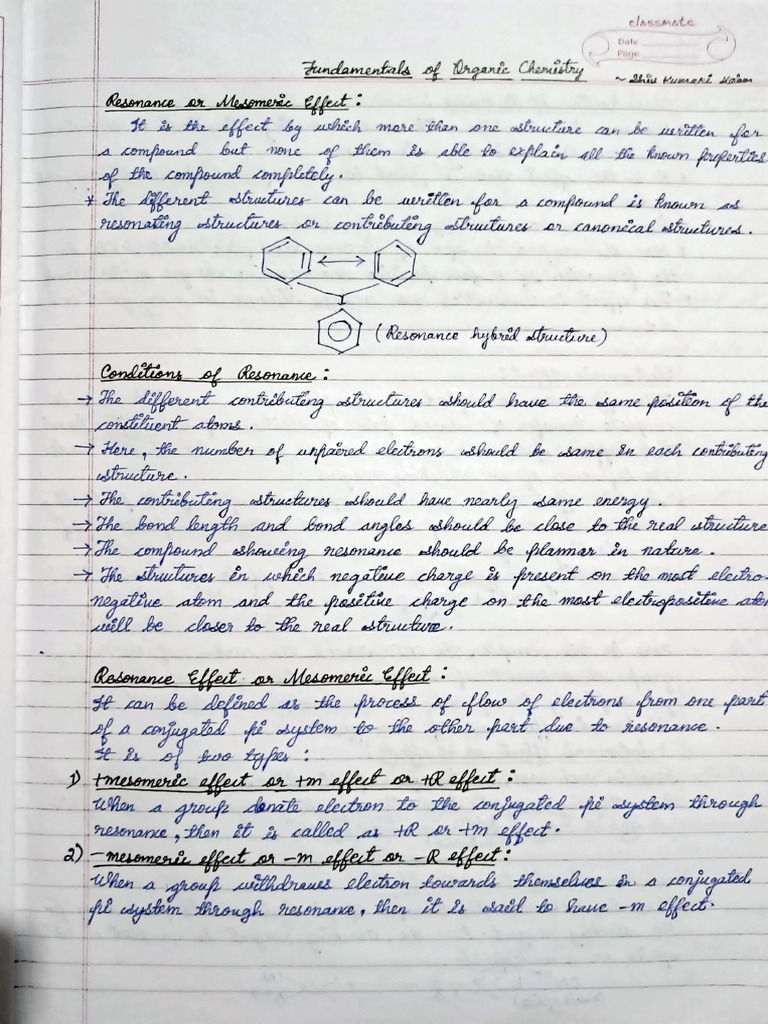 classmate
Date
Page
Fundamentals of Organic Chemistry
~ Shiv Kumari
Resonance or Mesomeric Effect :
It is the effect by which more than one structure can be written for
a compound but none of them is able to explain all the known properties
of the compound completely.
* The different structures can be written for a compound is known as
resonating structures or contributing structures or canonical structures.
(Resonance hybrid structure)
Conditions of Resonance :
→ The different contributing structures should have the same position of the
constituent atoms.
→ Here, the number of unpaired electrons should be same in each contributing
structure.
→ The contributing structures should have nearly same energy.
→ The bond length and bond angles should be close to the real structure
→ The compound showing resonance should be plannar in nature.
→ The structures in which negative charge is present on the most electro-
negative atom and the positive charge on the most electropositive atom
will be closer to the real structure.
Resonance Effect or Mesomeric Effect :
It can be defined as the process of flow of electrons from one part
of a conjugated pi system to the other part due to resonance.
It is of two types :
1) +mesomeric effect or +m effect or +R effect :
When a group donate electron to the conjugated pi system through
resonance, then it is called as +R or +m effect.
2) -mesomeric effect or -m effect or -R effect :
When a group withdraws electron towards themselves in a conjugated
pi system through resonance, then it is said to have -m effect.